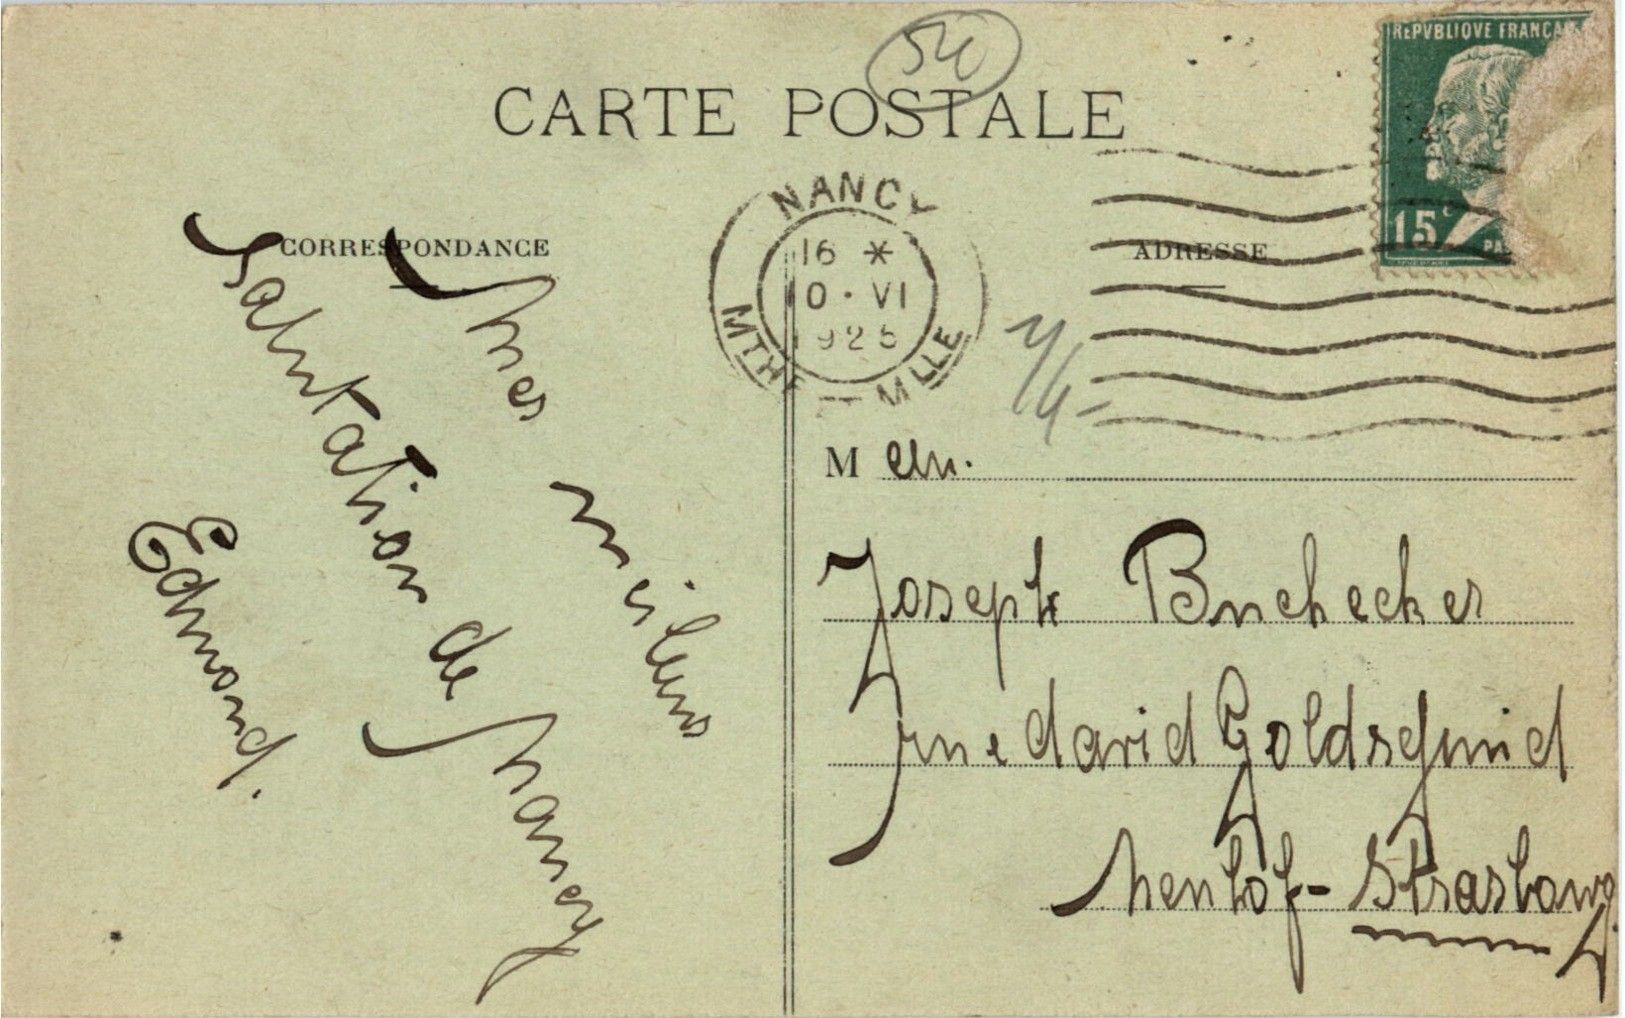 54
CARTE POSTALE
REPVBLIQVE FRANCAI
15c
PA
NANCY
16 *
10 · VI
1925
MTHE ET MLLE
CORRESPONDANCE
ADRESSE
Mes meilleurs
Salutation de Nancy
Edmond.
M
Joseph Buchecker
rue david Goldschmid
Neuhof - Strasbourg